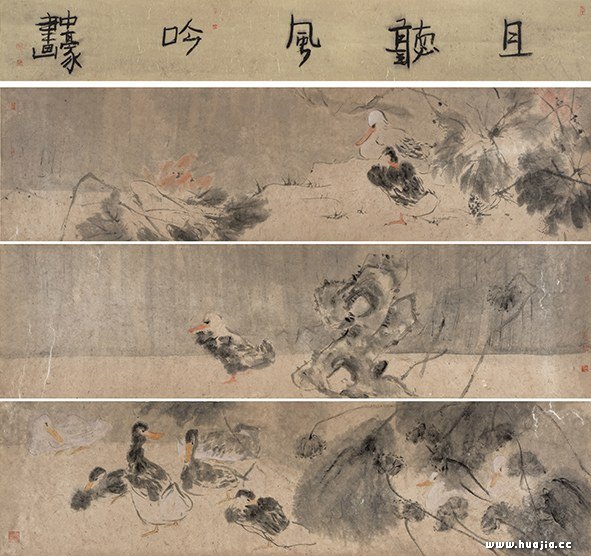 且聽風吟 中豪畫
www.huajia.cc